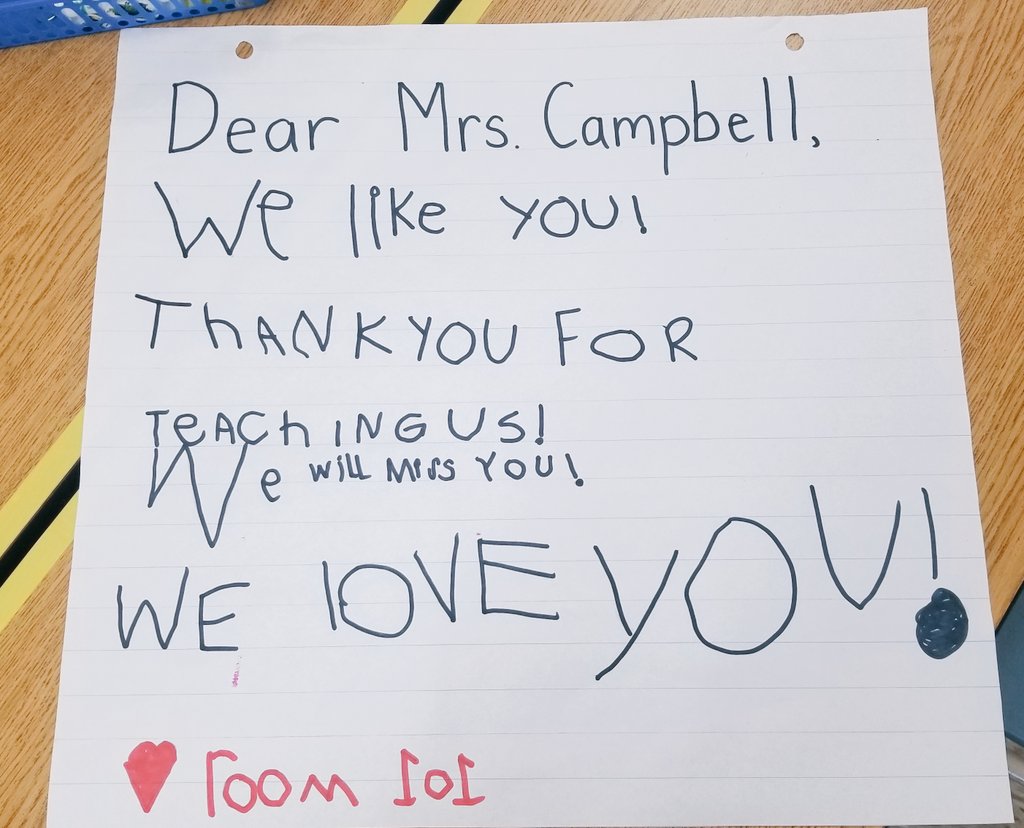 Dear Mrs. Campbell,
We like YOU!
ThANK YOU FOR
TeACh ING US!
We will Miss YOU!
WE lOVE YOU!
♥ room 101